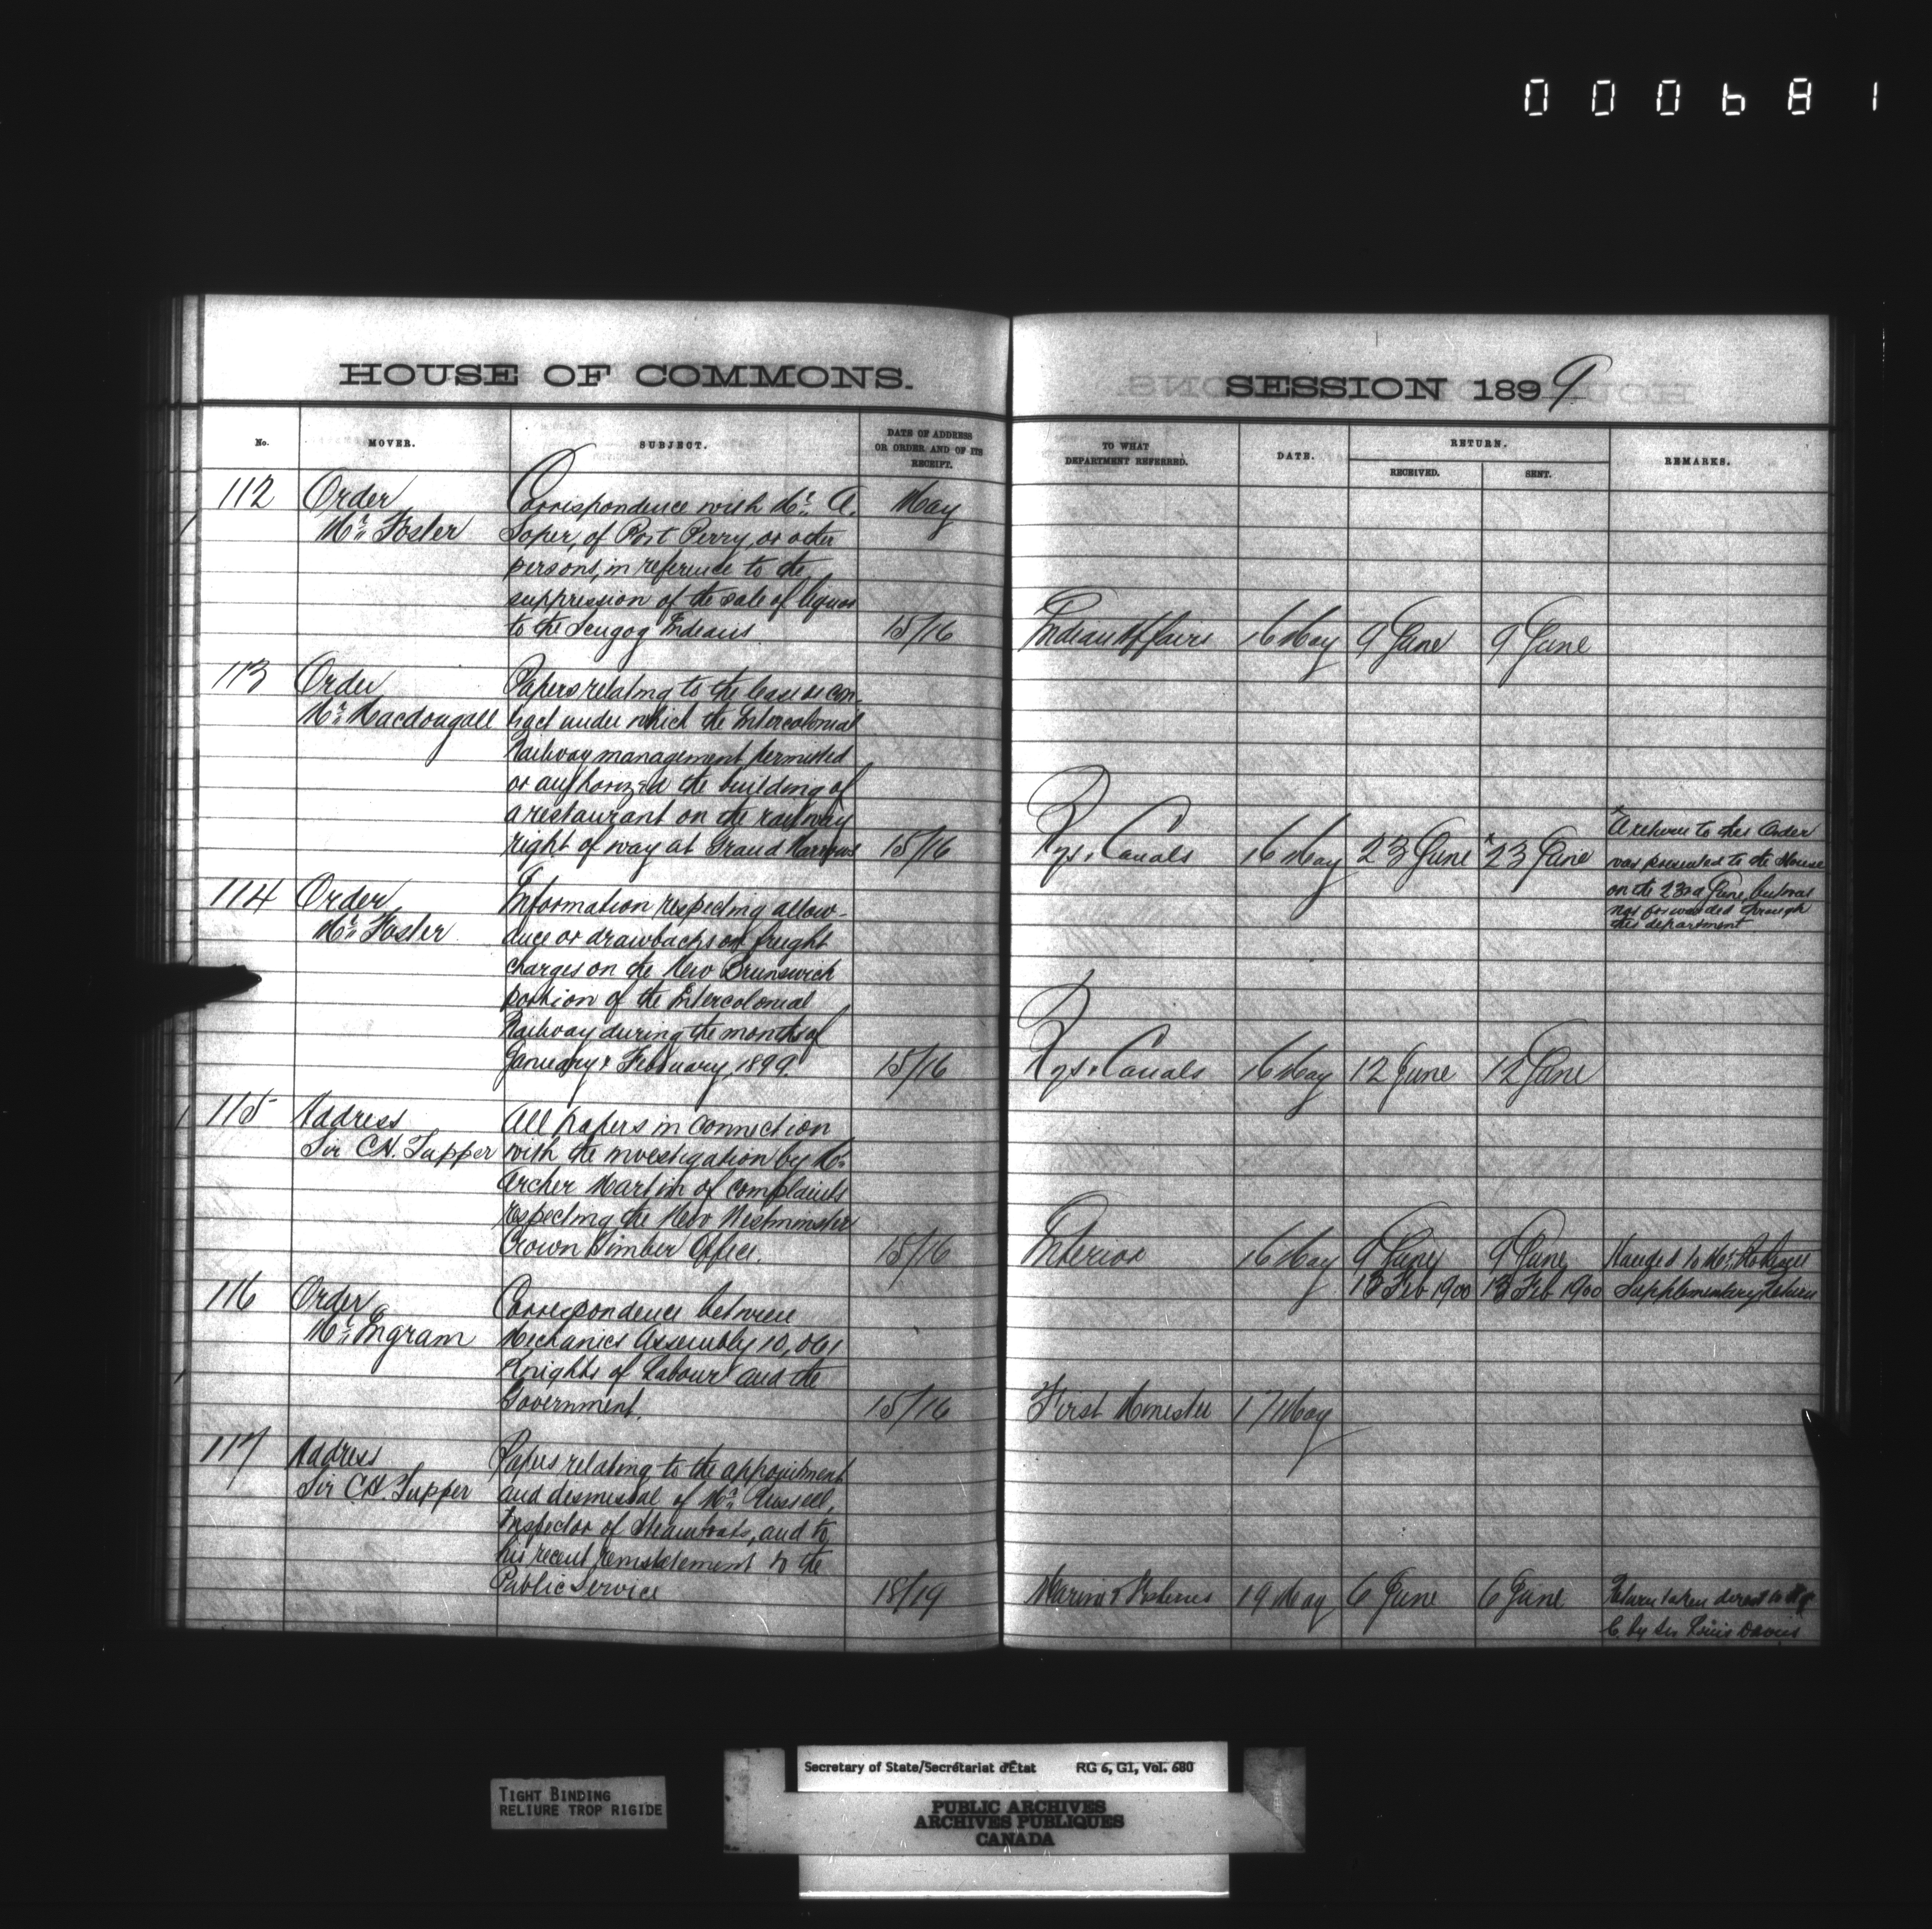 000681
HOUSE OF COMMONS.
No. MOVER. SUBJECT. DATE OF ADDRESS OR ORDER AND OF ITS RECEIPT.
112 Order Correspondence with Mr. A. May
Mr. Foster Soper, of Port Perry, or other
persons, in reference to the
suppression of the sale of liquor
to the Scugog Indians. 15/16
113 Order Papers relating to the lease or con-
Mr. Macdougall tract under which the Intercolonial
Railway management permitted
or authorized the building of
a restaurant on the railway
right of way at Grand Narrows 15/16
114 Order Information respecting allow-
Mr. Foster ance or drawbacks on freight
charges on the New Brunswick
portion of the Intercolonial
Railway during the months of
January & February, 1899. 15/16
115 Address All papers in connection
Sir C.H. Tupper with the investigation by Mr.
Archer Martin of complaints
respecting the New Westminster
Crown Timber Office. 15/16
116 Order Correspondence between
Mr. Ingram Mechanics Assembly 10,061
Knights of Labour and the
Government. 15/16
117 Address Papers relating to the appointment
Sir C.H. Tupper and dismissal of Mr. Russell,
Inspector of Steamboats, and to
his recent reinstatement to the
Public Service 18/19
SESSION 1899
TO WHAT DEPARTMENT REFERRED. DATE. RETURN. RECEIVED. SENT. REMARKS.
Indian Affairs 16 May 9 June 9 June
Rys. & Canals 16 May 23 June *23 June
* A return to this Order
was presented to the House
on the 23rd June, but was
not forwarded through
this department.
Rys. & Canals 16 May 12 June 12 June
Interior 16 May 9 June 9 June Handed to Mr.
13 Feb 1900 13 Feb 1900 Supplementary Return
First Minister 17 May
Marine & Fisheries 19 May 6 June 6 June Return taken direct to H of
C. by Sir Louis Davies
TIGHT BINDING
RELIURE TROP RIGIDE
Secretary of State/Secrétariat d'État RG 6, G1, Vol. 680
PUBLIC ARCHIVES
ARCHIVES PUBLIQUES
CANADA